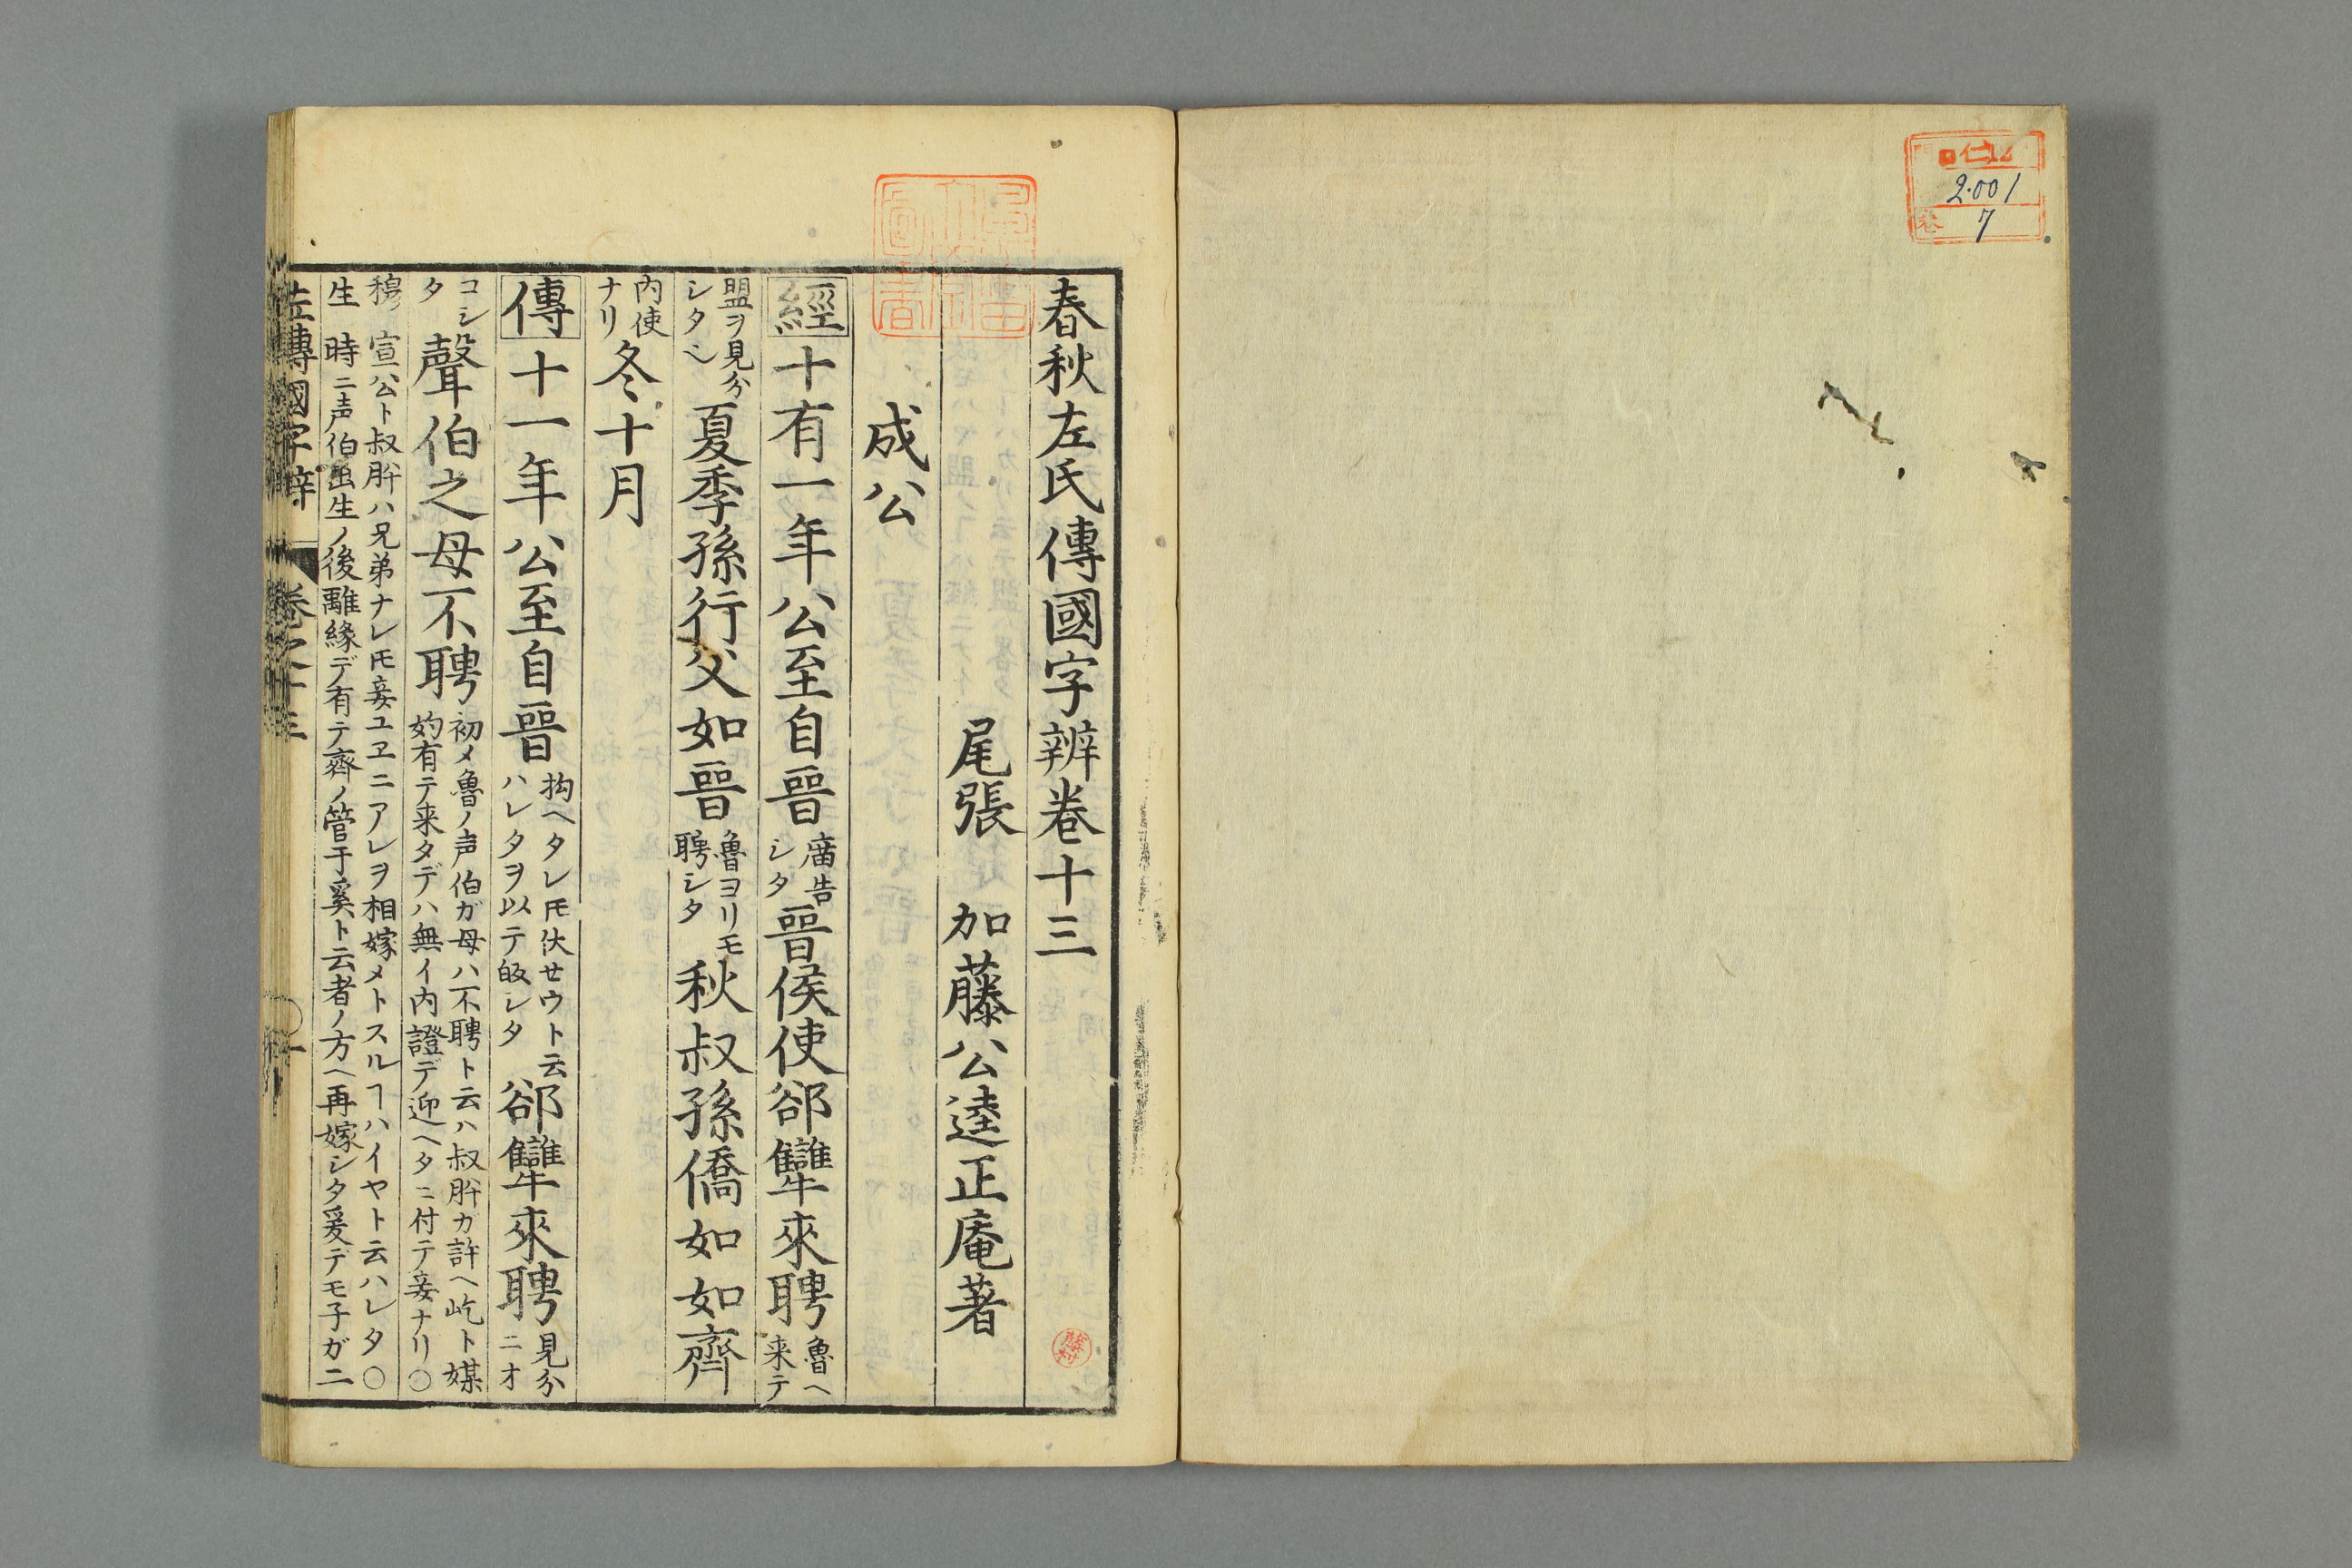 仁12
2.001
卷
7
春秋左氏傳國字辨卷十三
尾張 加藤公逵正庵著
成公
經十有一年公至自晉廟告シタ晉侯使郤犨來聘魯ヘ来テ
盟ヲ見分シタシ夏季孫行父如晉魯ヨリモ聘シタ秋叔孫僑如如齊
内使ナリ冬十月
傳十一年公至自晉拘ヘタレ𪜈伏セウト云ハレタヲ以テ皈レタ郤犨來聘見分ニオ
コシタ聲伯之母不聘初メ魯ノ声伯ガ母ハ不聘ト云ハ叔肸ガ許ヘ屹ト媒妁有テ来タデハ無イ内證デ迎ヘタニ付テ妾ナリ○
穆 宣公ト叔肸ハ兄弟ナレ𪜈妾ユヱニアレヲ相嫁メトスルヿハイヤト云ハレタ○
生 時ニ声伯出生ノ後離縁デ有テ齊ノ管于奚ト云者ノ方ヘ再嫁シタ爰デモ子ガ二
左傳國字辨 卷之十三 一